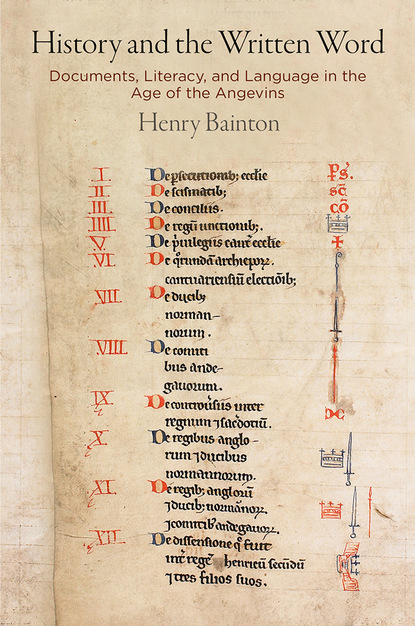 History and the Written Word
Documents, Literacy, and Language in the
Age of the Angevins
Henry Bainton
I. De ꝑsecutionib; ecclie p̄s.
II. De scismatib; sc̄
III. De conciliis. cō
IIII. De regū unctionib;.
V. De pͥuilegiis cant ecclie
VI. De qͦrundā archiepoꝝ.
cantuariensiū electiōib;
VII. De ducib;
norman-
norum.
VIII. De comiti
bus ande-
gauorum.
IX. De controu͛siis inter
regnum ⁊ sac͛dotiū.
X. De regibus anglo-
rum ⁊ ducibus
normannorum.
XI. De regib; angloꝝ
⁊ ducib; normānoꝝ
⁊ comitib; andegauoꝝ.
XII. De dissensione q̄ fuit
int͛ regē henricū secūdū
⁊ tres filios suos.